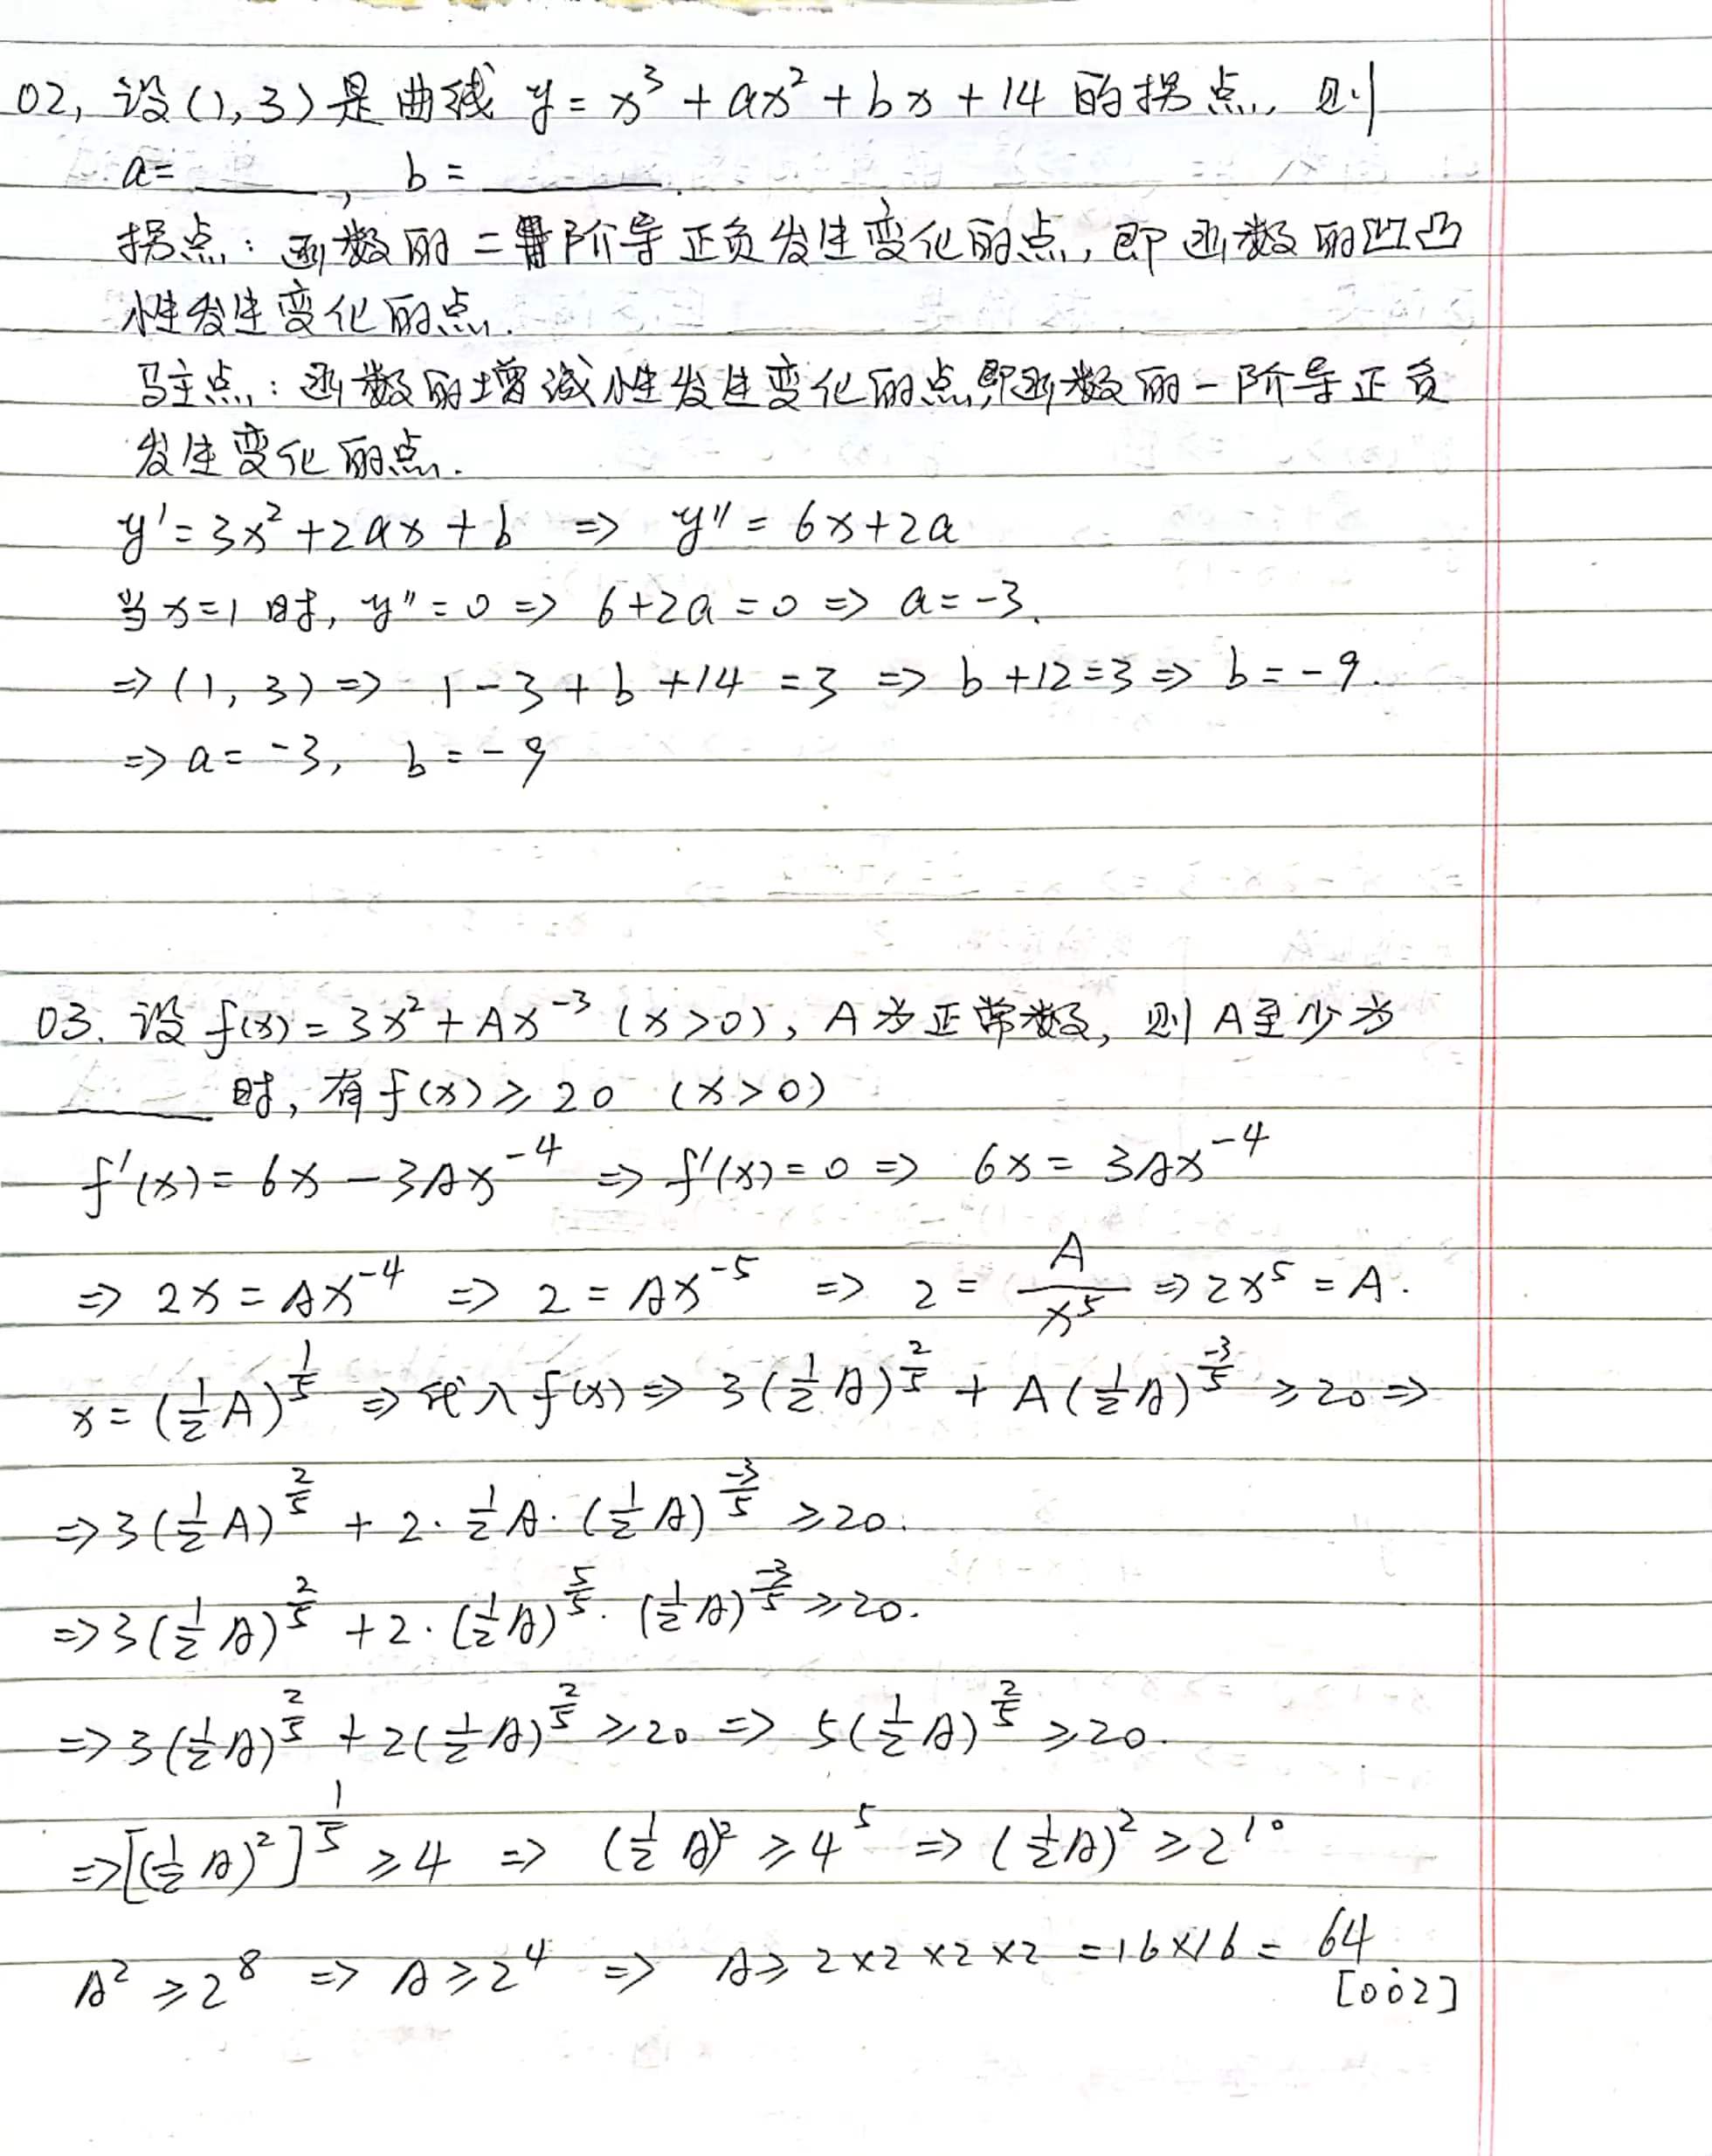 02, 设(1,3)是曲线 y = x³ + ax² + bx + 14 的拐点, 则
a= ____, b = ____.
拐点: 函数的二阶导正负发生变化的点, 即函数的凹凸
性发生变化的点.
驻点: 函数的增减性发生变化的点,即函数的一阶导正负
发生变化的点.
y' = 3x² + 2ax + b => y'' = 6x+2a
当x=1时, y''=0 => 6+2a=0 => a=-3.
=> (1,3) => 1-3+b+14=3 => b+12=3 => b=-9.
=> a=-3, b=-9
03. 设f(x)=3x²+Ax⁻³ (x>0), A为正常数, 则A至少为
____时, 有f(x)≥20 (x>0)
f'(x)=6x-3Ax⁻⁴ => f'(x)=0 => 6x=3Ax⁻⁴
=> 2x=Ax⁻⁴ => 2=Ax⁻⁵ => 2=A/x⁵ => 2x⁵=A.
x=(1/2 A)^(1/5) => 代入f(x) => 3(1/2 A)^(2/5) + A(1/2 A)^(-3/5) ≥20 =>
=> 3(1/2 A)^(2/5) + 2·1/2 A·(1/2 A)^(-3/5) ≥20.
=> 3(1/2 A)^(2/5) + 2·(1/2 A)^(5/5)·(1/2 A)^(-3/5) ≥20.
=> 3(1/2 A)^(2/5) + 2(1/2 A)^(2/5) ≥20 => 5(1/2 A)^(2/5) ≥20.
=> [(1/2 A)²]^(1/5) ≥4 => (1/2 A)² ≥4⁵ => (1/2 A)² ≥2¹⁰
A²≥2⁸ => A≥2⁴ => A≥2×2×2×2=16×16=64
[002]